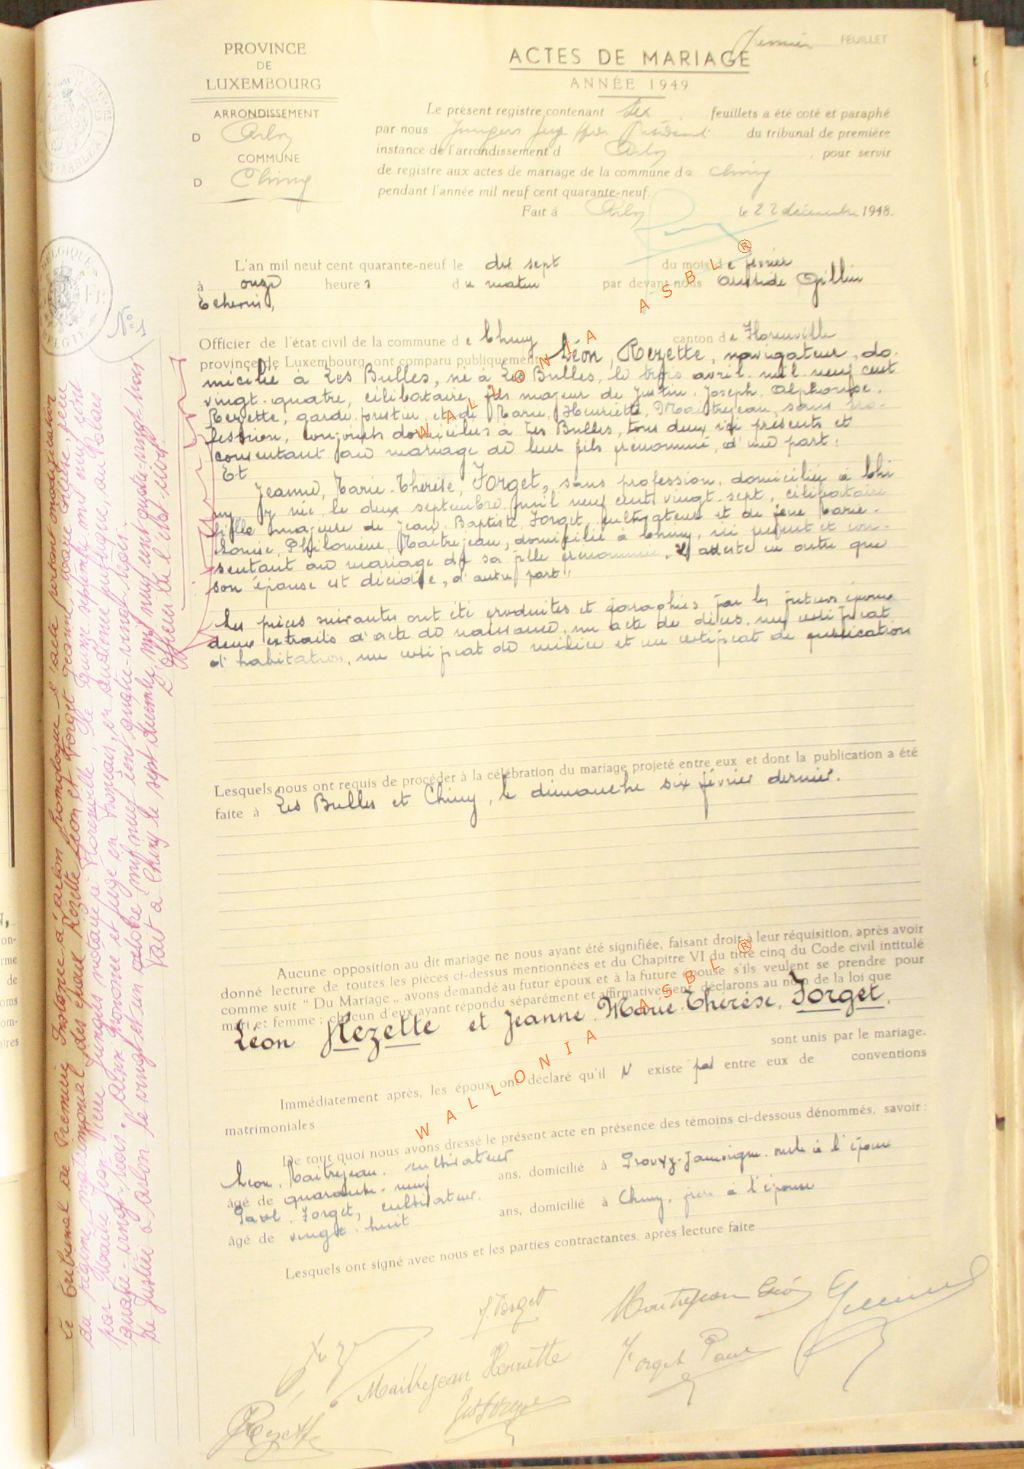 premier FEUILLET
PROVINCE
DE
LUXEMBOURG
ARRONDISSEMENT
D Arlon
COMMUNE
D Chiny
ACTES DE MARIAGE
ANNÉE 1949
Le présent registre contenant six feuillets a été coté et paraphé
par nous Président du tribunal de première
instance de l'arrondissement d Arlon, pour servir
de registre aux actes de mariage de la commune de Chiny
pendant l'année mil neuf cent quarante-neuf.
Fait à Arlon le 22 décembre 1948.
N° 1
L'an mil neuf cent quarante-neuf le dix sept du mois de février
à onze heures du matin par devant nous Gillin
Echevin,
Officier de l'état civil de la commune de Chiny canton de Florenville
province de Luxembourg, ont comparu publiquement Léon, Rezette, navigateur, do-
micilié à Les Bulles, né à Les Bulles, le trois avril mil neuf cent
vingt-quatre, célibataire, fils majeur de Justin, Joseph, Alphonse,
Rezette, garde forestier et de Marie, Henriette, Maitrejean, sans pro-
fession, conjoints domiciliés à Les Bulles, tous deux ici présents et
consentant au mariage de leur fils prénommé, d'une part;
Et
Jeanne, Marie-Thérèse, Forget, sans profession, domiciliée à Chi
ny, y née le deux septembre mil neuf cent vingt-sept, célibataire
fille majeure de Jean Baptiste Forget, cultivateur et de Marie-
Louise, Philomène, Maitrejean, domicilié à Chiny, ici présent et con-
sentant au mariage de sa fille prénommée, et atteste en outre que
son épouse est décédée, d'autre part;
Les pièces suivantes ont été produites et paraphées par les futurs époux
deux extraits d'acte de naissance, un acte de décès, un certificat
d'habitation, un certificat de milice et un certificat de publication
Lesquels nous ont requis de procéder à la célébration du mariage projeté entre eux et dont la publication a été
faite à Les Bulles et Chiny, le dimanche six février dernier.
Aucune opposition au dit mariage ne nous ayant été signifiée, faisant droit à leur réquisition, après avoir
donné lecture de toutes les pièces ci-dessus mentionnées et du Chapitre VI du titre cinq du Code civil intitulé
comme suit " Du Mariage „ avons demandé au futur époux et à la future épouse s'ils veulent se prendre pour
mari et femme ; chacun d'eux ayant répondu séparément et affirmativement, déclarons au nom de la loi que
Léon Rezette et Jeanne-Marie-Thérèse, Forget,
sont unis par le mariage.
Immédiatement après, les époux ont déclaré qu'il n' existe pas entre eux de conventions
matrimoniales
De tout quoi nous avons dressé le présent acte en présence des témoins ci-dessous dénommés, savoir :
Léon, Maitrejean, cultivateur
âgé de quarante-neuf ans, domicilié à Prouvy-Jamoigne, oncle à l'époux
Paul Forget, cultivateur
âgé de vingt-huit ans, domicilié à Chiny, frère à l'épouse
Lesquels ont signé avec nous et les parties contractantes, après lecture faite
J. Forget
Maitrejean Léon
Maitrejean Henriette
Forget Paul
Rezette
Le Tribunal de Première Instance d'Arlon homologue l'acte portant modification
du régime matrimonial des époux Rezette Léon et Forget Jeanne, Marie Thérèse reçu
par Maître Jean Pierre Jungers notaire à Florenville, le quinze septembre mil neuf cent
quatre-vingt-trois. Ainsi prononcé et jugé en français, en audience publique, au Palais
de Justice à Arlon le vingt et un octobre mil neuf cent quatre-vingt-trois.
Fait à Chiny le sept décembre mil neuf cent quatre-vingt-trois
L'Officier de l'état civil
WALLONIA ASBL ®
WALLONIA ASBL ®